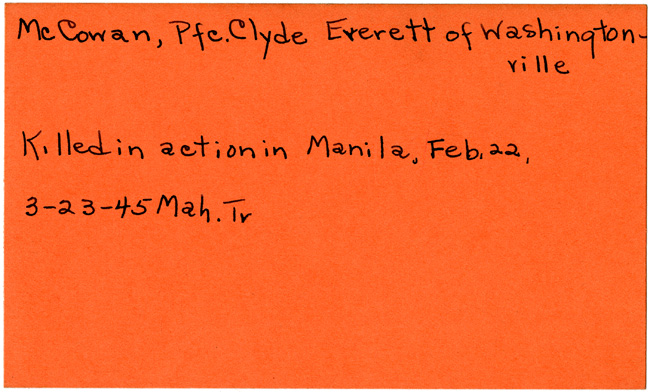 McCowan, Pfc. Clyde Everett of Washington-
ville
Killed in action in Manila, Feb. 22,
3-23-45 Mah. Tr